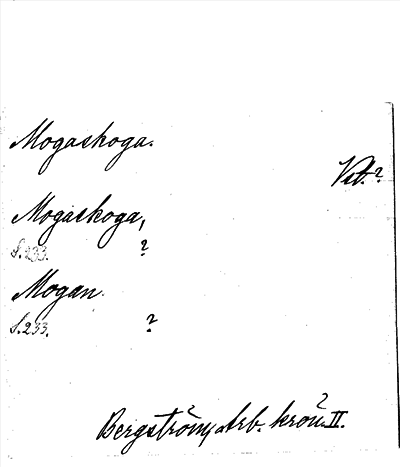 Mogaskoga.
Vet.?
Mogaskoga,
S. 233. ?
Mogan.
S. 233. ?
Bergström, Arb. krön. II.